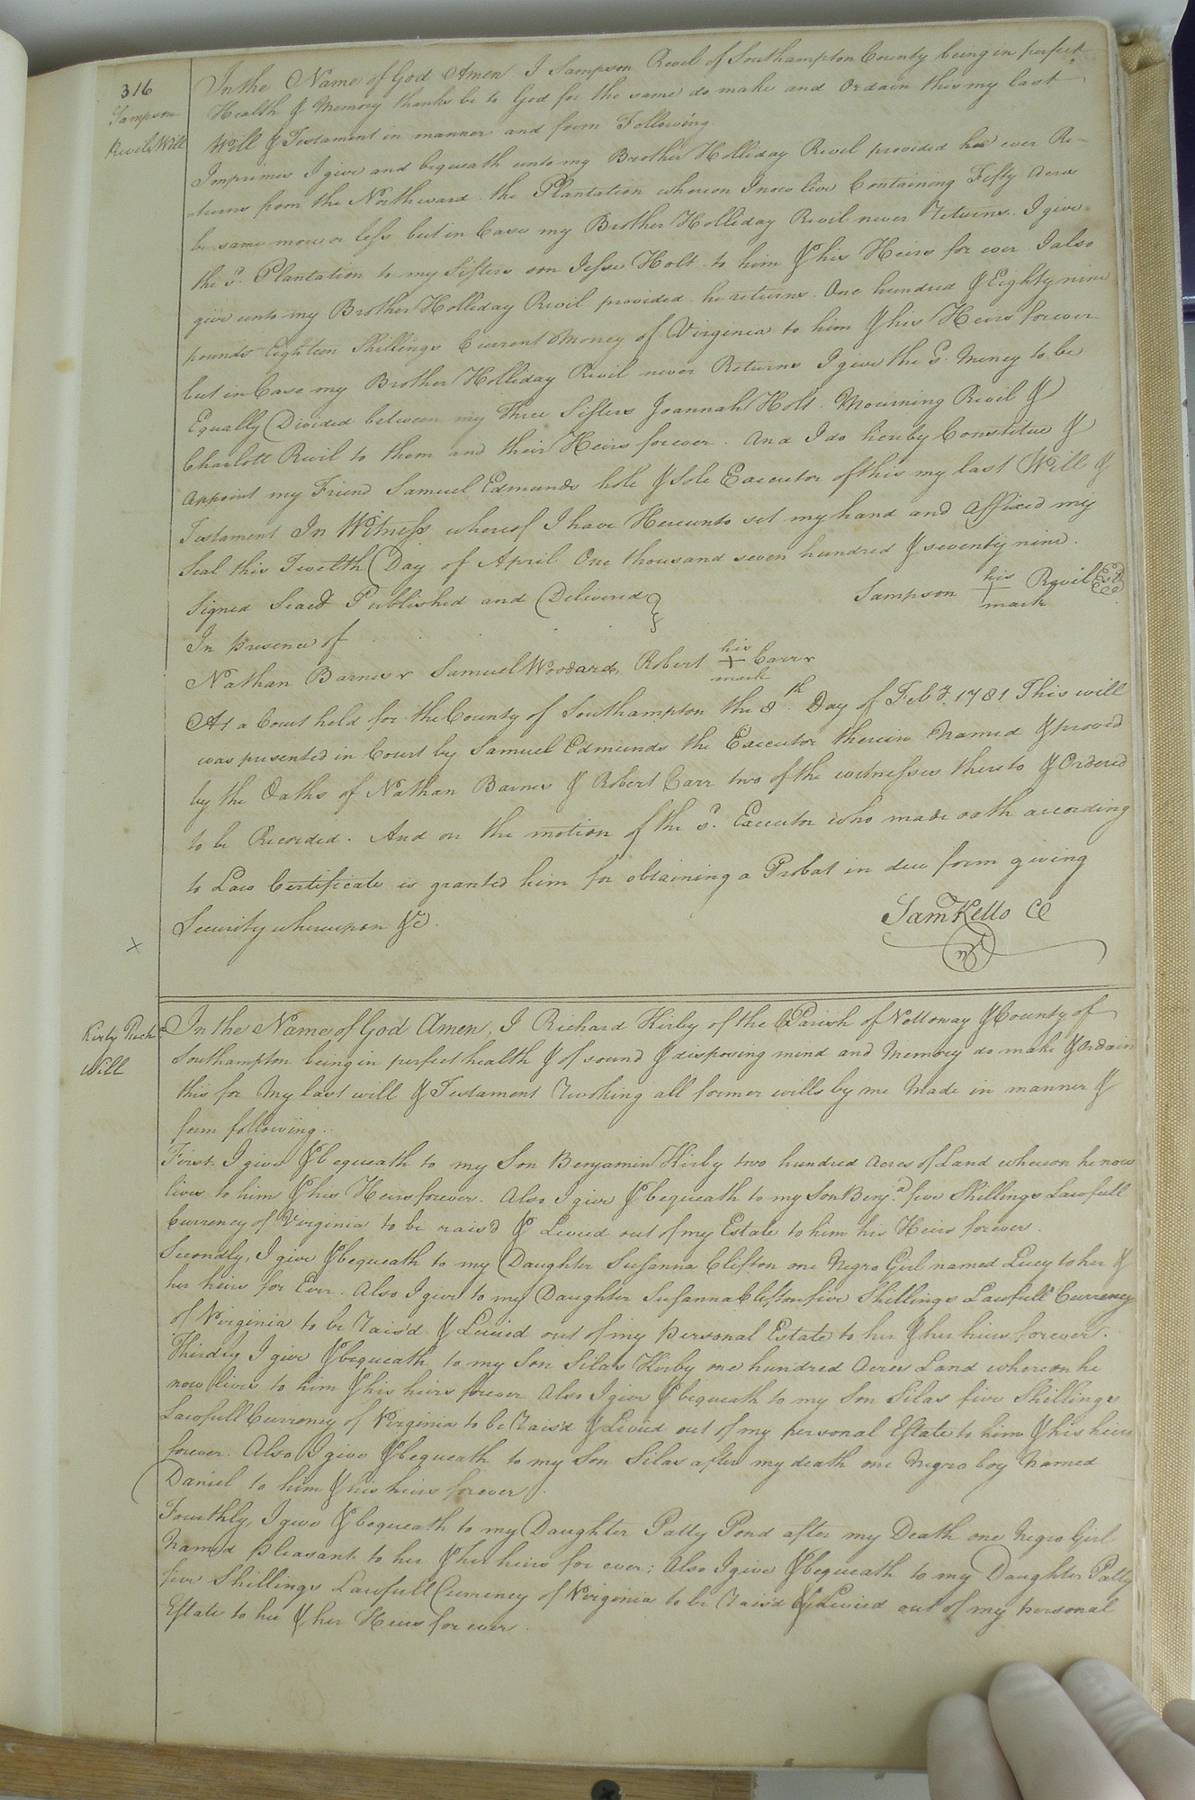 316
Sampson
Revils Will
In the Name of God Amen I Sampson Revel of Southampton County being in perfect
Health & Memory thanks be to God for the same do make and Ordain this my last
Will & Testament in manner and form Following
Imprimes I give and bequeath unto my Brother Holliday Revil provided he ever Re-
-turns from the Northward the Plantation whereon I now live Containing Fifty Acres
be same more or less but in Case my Brother Holliday Revil never Returns. I give
the sd. Plantation to my Sisters son Jesse Holt to him & his Heirs for ever I also
give unto my Brother Holliday Revil provided he returns One hundred & Eighty nine
pounds Eighteen Shillings Current Money of Virginia to him & his Heirs forever
but in Case my Brother Holliday Revil never Returns I give the sd. Money to be
Equally Divided between my three Sisters Joannah Holt Mourning Revil &
Charlott Revil to them and their Heirs forever. And I do hereby Constitue &
Appoint my Friend Samuel Edmunds hole & Sole Executor of this my last Will &
Testament In Witness whereof I have Hereunto set my hand and Affixed my
Seal this Twelth Day of April One thousand seven hundred & seventy nine.
Signed Seald Published and Delivered
Sampson his + mark Revil
In Presence of
Nathan Barnes Samuel Woodard, Robert his + mark Carr
At a Court held for the County of Southampton the 8th Day of Feby. 1781 This will
was presented in Court by Samuel Edmunds the Executor therein Named & proved
by the Oaths of Nathan Barnes & Robert Carr two of the witnesses thereto & Ordered
to be Recorded. And on the motion of the sd. Executor who made oath according
to Law Certificate is granted him for obtaining a Probat in due form giving
Security whereupon &c.
Sam Kello CC
x
Kirby Richd
Will
In the Name of God Amen, I Richard Kirby of the Parish of Nottoway & County of
Southampton being in perfect health & of sound & disposing mind and Memory do make & Ordain
this for My last will & Testament Revoking all former wills by me Made in manner &
form following.
First I give & bequeath to my Son Benjamin Kirby two hundred Acres of Land whereon he now
lives to him & his Heirs forever. Also I give & bequeath to my Son Benja. five Shillings Lawfull
Currency of Virginia to be rais'd & Levied out of my Estate to him his Heirs forever.
Secondly, I give & bequeath to my Daughter Susanna Clifton one Negro Girl named Lucy to her &
her heirs for Ever. Also I give to my Daughter Susanna Clifton five Shillings Lawfull Currency
of Virginia to be Rais'd & Levied out of my personal Estate to her & her heirs forever.
Thirdly I give & bequeath to my Son Silas Kirby one hundred Acres Land whereon he
now lives to him & his heirs forever Also I give & bequeath to my Son Silas five Shillings
Lawfull Currency of Virginia to be Rais'd & Levied out of my personal Estate to him & his heirs
forever. Also I give & bequeath to my Son Silas after my death one Negro boy Named
Daniel to him & his heirs forever.
Fourthly, I give & bequeath to my Daughter Patty Pond after my Death one Negro Girl
Named Pleasant to her & her heirs for ever; Also I give & bequeath to my Daughter Patty
five Shillings Lawfull Currency of Virginia to be Rais'd & Levied out of my personal
Estate to her & her Heirs for ever.